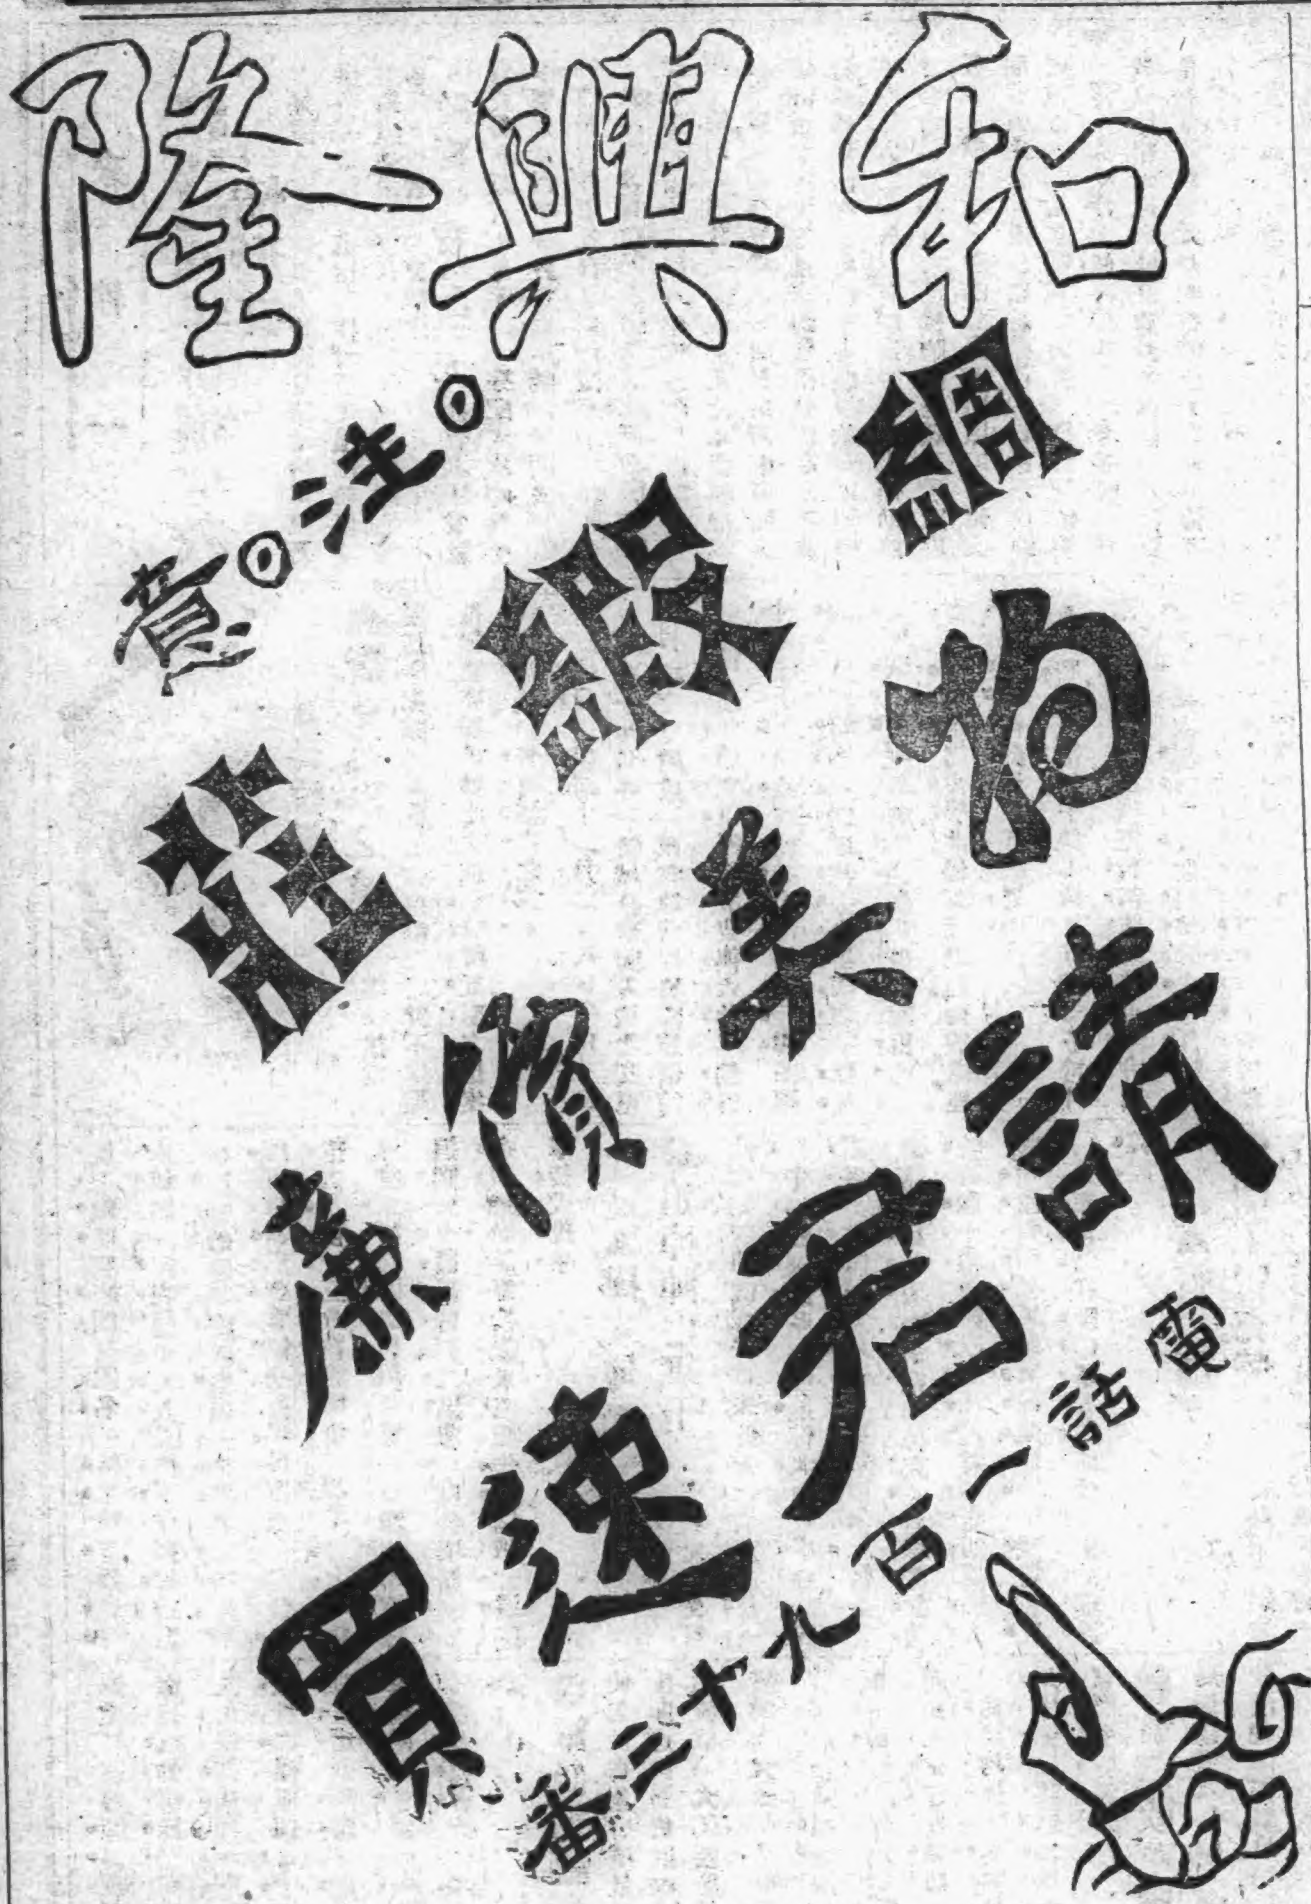 和興隆
綢緞莊
◎注◎意
物美價廉
請君速買
電話一百九十三番